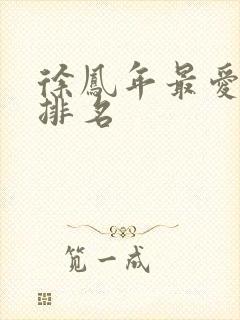 徐鳳年最愛
排名
笕一成